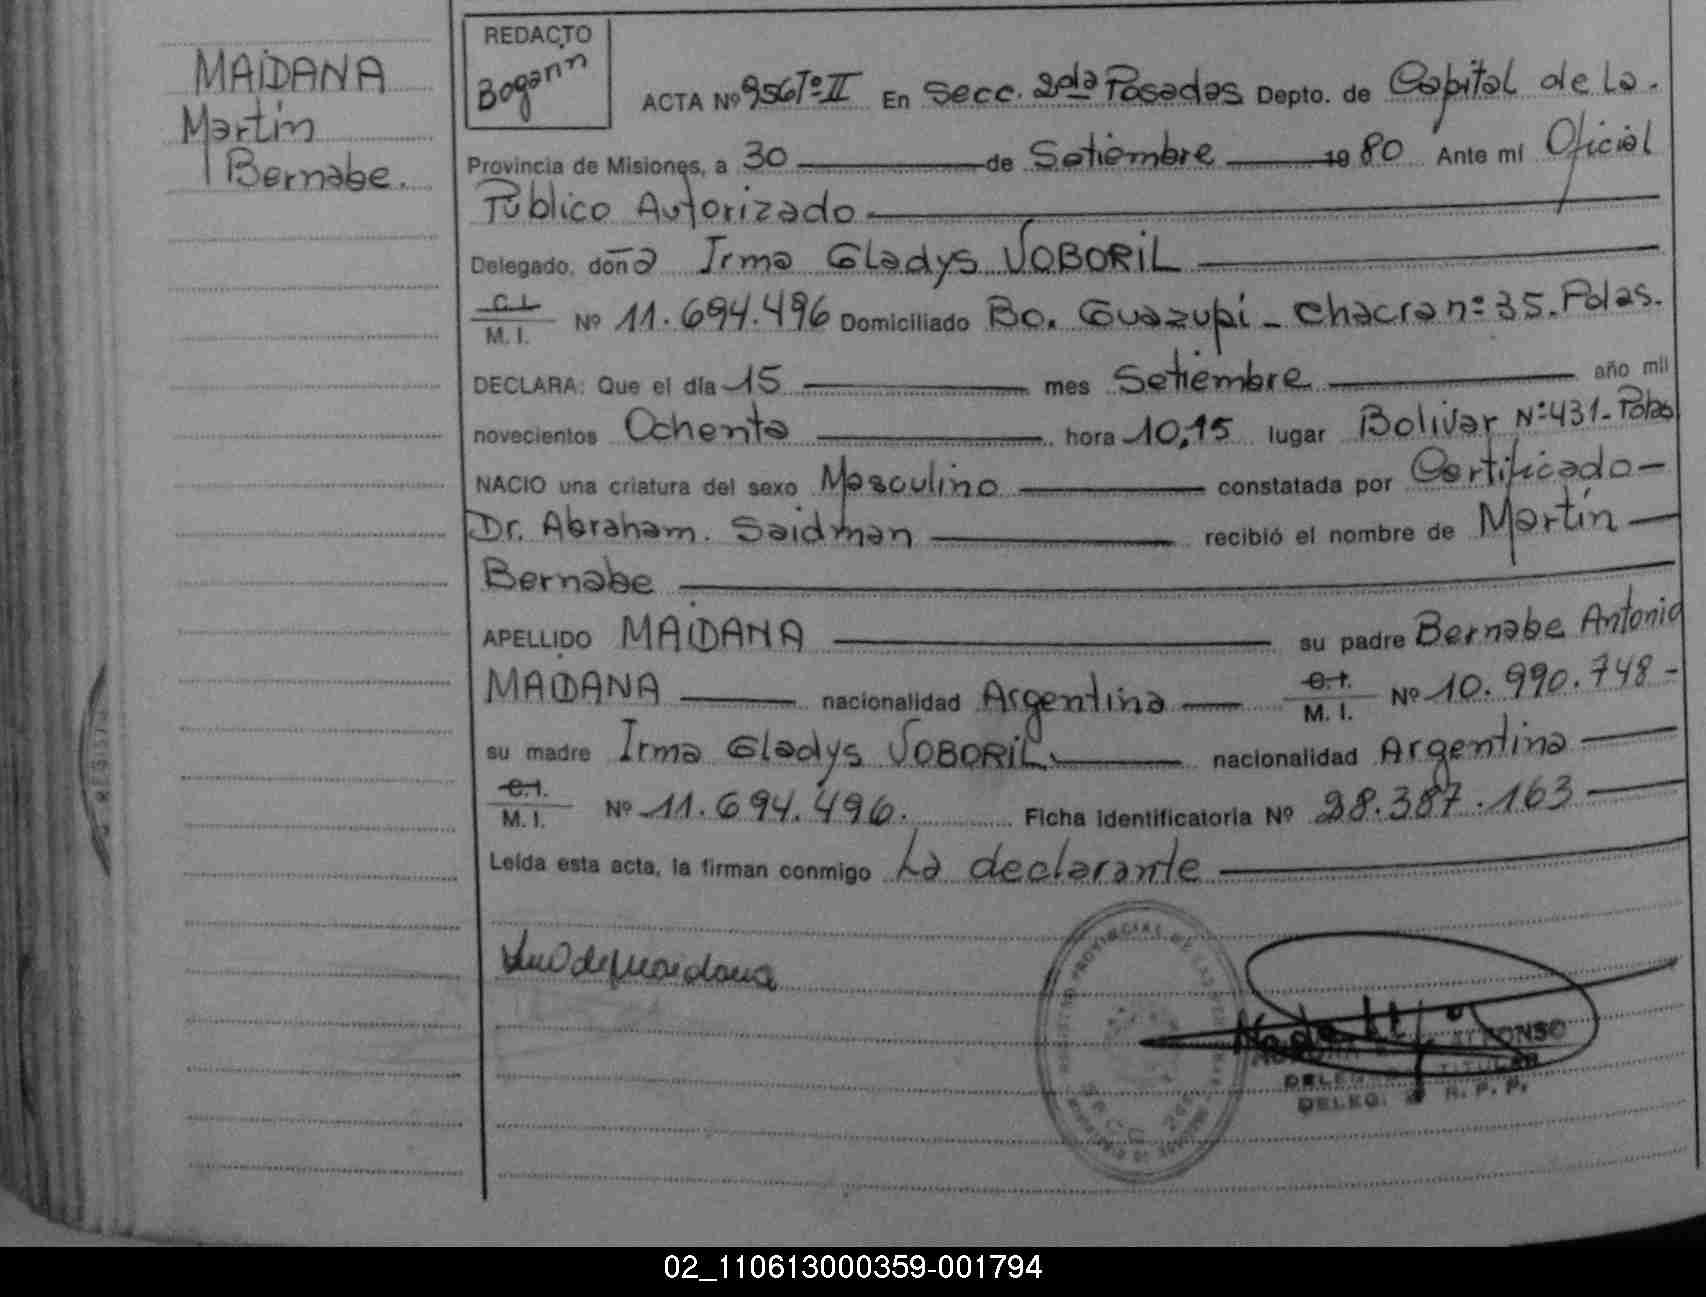 MAIDANA
Martín
Bernabe.
REDACTO
Bogarin
ACTA Nº 956 Tº II En Secc. 2da Posadas Depto. de Capital de La.
Provincia de Misiones, a 30 de Setiembre 1980 Ante mi Oficial
Público Autorizado
Delegado, doña Irma Gladys VOBORIL
C.I.
M. I. Nº 11.694.496 Domiciliado Bo. Guazupi - Chacra nº 35. Pdas.
DECLARA: Que el día 15 mes Setiembre año mil
novecientos Ochenta hora 10,15 lugar Bolivar Nº 431- Pdas
NACIO una criatura del sexo Masculino constatada por Certificado-
Dr. Abraham. Saidman recibió el nombre de Martín
Bernabe
APELLIDO MAIDANA su padre Bernabe Antonio
MAIDANA nacionalidad Argentina C.I. M. I. Nº 10.990.748-
su madre Irma Gladys VOBORIL nacionalidad Argentina
C.I.
M. I. Nº 11.694.496. Ficha Identificatoria Nº 28.387.163
Leída esta acta, la firman conmigo La declarante
de Maidana
REGISTRO PROVINCIAL DE LAS PERSONAS
SECC. 2da
ALFONSO
TITULAR
DELEG. R. P. P.
02_110613000359-001794